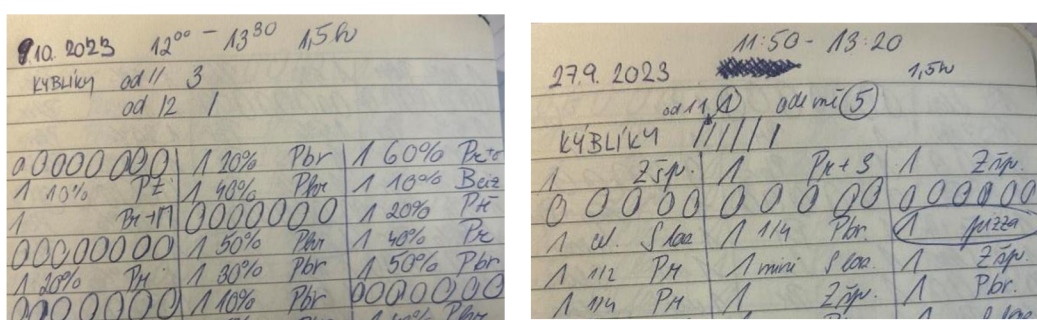 9.10. 2023 12⁰⁰ - 13³⁰ 1,5h
KYBLÍKY od 11 3
od 12 1
00000000 1 20% Pbr 1 60% Pr+o
1 10% Př 1 40% Pbr 1 10% Bez
1 Br+M 0000000 1 20% Př
00000000 1 50% Pbr 1 40% Pr
1 20% Př 1 30% Pbr 1 50% Pbr
0000000 1 10% Pbr 0000000
11:50 - 13:20
27.9. 2023 1,5h
od 11 1 ode mě 5
KÝBLÍKY
1 Zšp. 1 Pr+S 1 Zšp.
0 0 0 0 0 0 0 0 0 0 0 0 0 0 0 0
1 cel. 1 1/4 Pbr. 1 pizza
1 1/2 Př 1 mini 1 Zšp.
1 1/4 Př 1 Zšp. 1 Pbr.